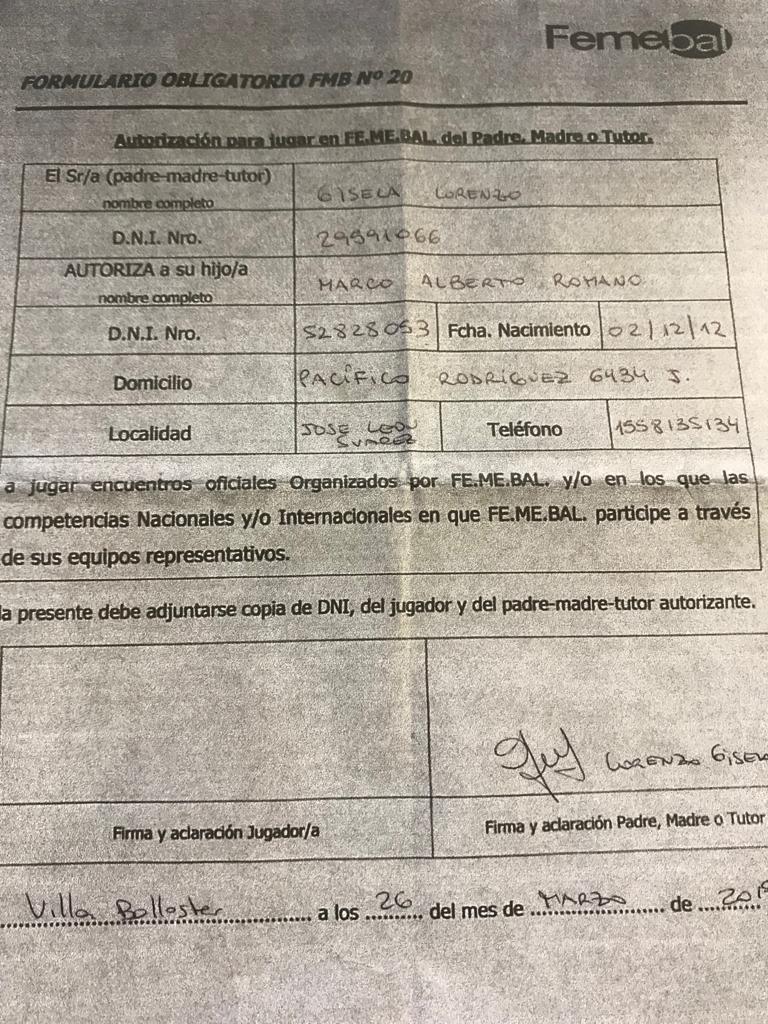 Femebal
FORMULARIO OBLIGATORIO FMB Nº 20
Autorización para jugar en FE.ME.BAL. del Padre, Madre o Tutor.
El Sr/a (padre-madre-tutor)
nombre completo
GISELA LORENZO
D.N.I. Nro.
29591066
AUTORIZA a su hijo/a
nombre completo
MARCO ALBERTO ROMANO
D.N.I. Nro.
52828053
Fcha. Nacimiento
02/12/12
Domicilio
PACÍFICO RODRÍGUEZ 6434 J.
Localidad
JOSE LEON
SUAREZ
Teléfono
1558135134
a jugar encuentros oficiales Organizados por FE.ME.BAL. y/o en los que las
competencias Nacionales y/o Internacionales en que FE.ME.BAL. participe a través
de sus equipos representativos.
la presente debe adjuntarse copia de DNI, del jugador y del padre-madre-tutor autorizante.
LORENZO GISELA
Firma y aclaración Jugador/a
Firma y aclaración Padre, Madre o Tutor
Villa Ballester a los 26 del mes de MARZO de